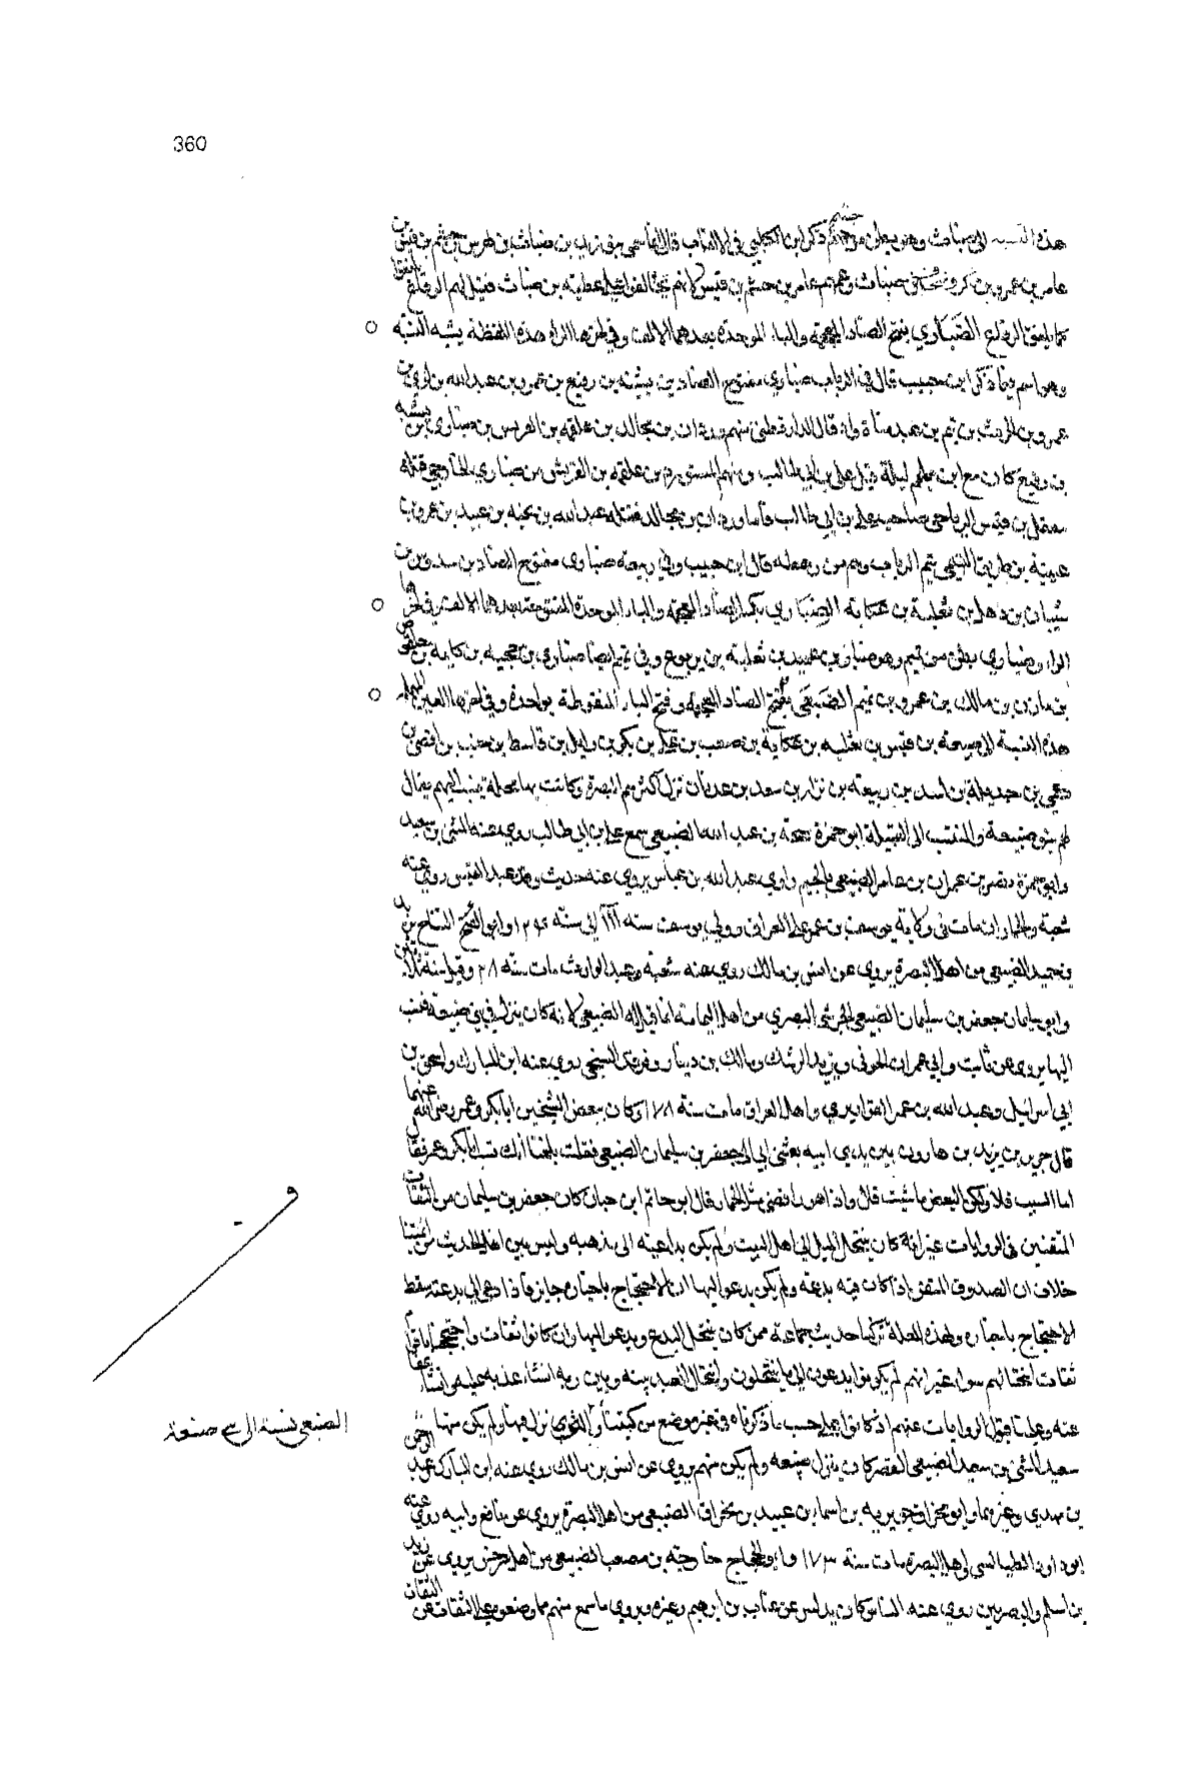 360
هذه النسبة الى ضباث وهو بطن من جشم ذكر ابن الكلبي في الالقاب قال انما سمي زيد بن ضباث بن بن جشم بن قيس بن
عامر بن عمرو بن بكر ضباث وعمهم عامر بن جشم بن قيس لانهم عطية بن ضباث فقيل لهم الرقاع
كما يلفق الرقاع الضباري بفتح الضاد المعجمة والباء الموحدة بعدهما الالف وفي اخرها الراء هذه اللفظة يشبه النسبة
وهو اسم وفيما ذكر ابن حبيب قال في الرباب ضباري مفتوح الضاد بن نشبة بن ربيع بن عمرو بن عبد الله بن لوي بن
عمرو بن الحارث بن تيم بن عبد مناة واد قال الدارقطني منهم وردان بن مجالد بن علفة بن الفريش بن ضباري بن نشبة
بن ربيع كان مع ابن ملجم ليلة قتل علي بن ابي طالب ومنهم المستورد بن علفة بن الفريش بن ضباري الخارجي قتله
معقل بن قيس الرياحي صاحب علي بن ابي طالب فاما وردان بن مجالد فقتله عبد الله بن نجبة بن عبيد بن عمرو بن
عتيبة بن طريف التيمي تيم الرباب وهم من رهطه قال ابن حبيب وفي ربيعة ضباري مفتوح الضاد بن سدوس بن
شيبان بن ذهل بن ثعلبة بن عكابة الضباري بكسر الضاد المعجمة والباء الموحدة المفتوحة بعدهما الالف وفي اخرها
الراء وضباري بطن من تميم وهو ضباري بن عبيد بن ثعلبة بن يربوع وفي تميم ايضا ضباري بن حجية بن كابية بن حرقوص
بن مازن بن مالك بن عمرو بن تميم الضبعي بضم الضاد المعجمة وفتح الباء المنقوطة بواحدة وفي اخرها العين المهملة
هذه النسبة الى ضبيعة بن قيس بن ثعلبة بن عكابة بن صعب بن علي بن بكر بن وايل بن قاسط بن هنب بن افصى بن
دعمي بن جديلة بن اسد بن ربيعة بن نزار بن معد بن عدنان نزل اكثرهم البصرة وكانت بها محلة ينسب اليهم يقال
لهم بنو ضبيعة والمنتسب الى القبيلة ابو حمزة بن عبد الله الضبعي سمع علي بن ابي طالب روى عنه المثنى بن سعيد
وابو جمرة نصر بن عمران بن عاصم الضبعي بالجيم راوي عبد الله بن عباس يروي عنه حديث وفد عبد القيس روى عنه
شعبة والحمادان مات في ولاية يوسف بن عمر على العراق وولي يوسف سنة الى سنة وابو التياح يزيد
بن حميد الضبعي من اهل البصرة يروي عن انس بن مالك روى عنه شعبة وعبد الوارث مات سنة وقيل سنة ثلاثين
وابو سليمان جعفر بن سليمان الضبعي الحرشي البصري من اهل اليمامة انما قيل له الضبعي لانه كان ينزل في بني ضبيعة فنسب
اليها يروي عن ثابت وابي عمران الجوني ويزيد الرشك ومالك بن دينار وفرقد السبخي روى عنه ابن المبارك واسحق بن
ابي اسرائيل وعبيد الله بن عمر القواريري واهل العراق مات سنة ١٧٨ وكان يبغض الشيخين ابا بكر وعمر رضي الله عنهما
قال جرير بن يزيد بن هارون بين يدي ابيه بعثني ابي الى جعفر بن سليمان الضبعي فقلت بلغنا انك تسب ابا بكر وعمر فقال
اما السب فلا ولكن البغض ما شئت قال واذا هو رافضي مثل الحمار قال ابو حاتم ابن حبان كان جعفر بن سليمان من الثقات
المتقنين في الروايات غير انه كان ينتحل الميل الى اهل البيت ولم يكن بداعية الى مذهبه وليس بين اهل الحديث من ائمتنا
خلاف ان الصدوق المتقن اذا كان فيه بدعة ولم يكن يدعو اليها ان الاحتجاج باخباره جايز فاذا دعى الى بدعته سقط
الاحتجاج باخباره ولهذه العلة تركنا حديث جماعة ممن كان ينتحل البدع ويدعو اليها وان كانوا ثقات واحتججنا باقوام
ثقات انتحالهم سواء غير انهم لم يكونوا يدعون الى ما ينتحلون وانتحال العبد بينه وبين ربه ان شاء عذبه عليه وان شاء عفا
عنه وعلينا قبول الروايات عنهم اذ كانوا ثقات على حسب ما ذكرناه في غير موضع من كتبنا نزل فيها ولم يكن منها
سعيد المثنى بن سعيد الضبعي القصير كان ينزل ضبيعة ولم يكن منهم يروي عن انس بن مالك روى عنه ابن المبارك وعبد الرحمن
بن مهدي وغيرهما وابو مخراق جويرية بن اسماء بن عبيد بن مخراق الضبعي من اهل البصرة يروي عن نافع وابيه روى عنه
ابو داود الطيالسي واهل البصرة مات سنة ١٧٣ وابو الحجاج خارجة بن مصعب الضبعي من اهل سرخس يروي عن زيد
بن اسلم والبصريين روى عنه الناس كان يدلس عن غياث بن ابرهيم وغيره ويروي ما سمع منهم مما وضعوه على الثقات عن الثقات
الضبعي نسبة الى ضبيعة